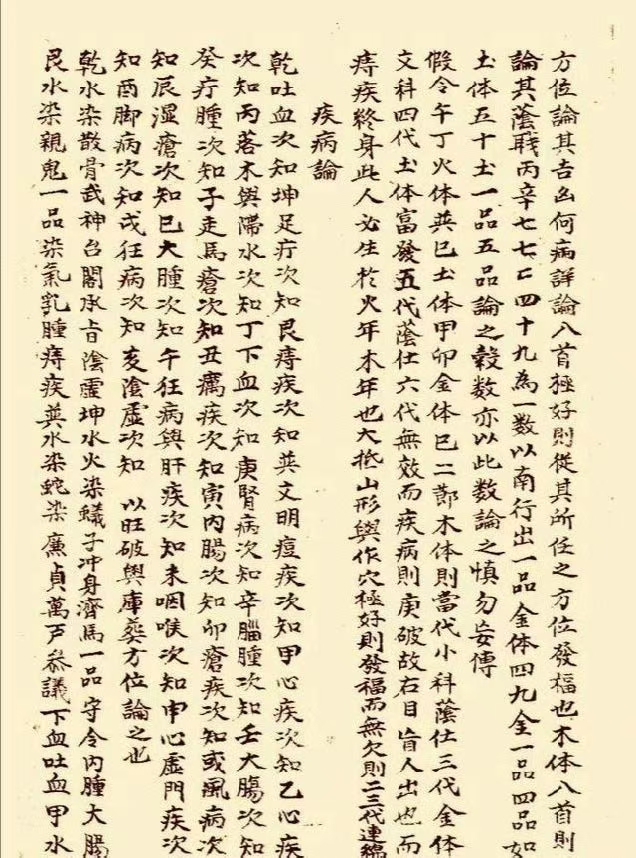 方位論其吉凶何病詳論八首極好則從其所任之方位發福也木体八首則
論其蔭職丙辛七七乙四十九為一数以南行出一品金体四九金一品四品如
土体五十土一品五品論之穀数亦以此数論之慎勿妄傳
假令午丁火体巽巳土体甲卯金体巳二節木体則當代小科蔭仕三代金体
文科四代土体富發五代蔭仕六代無效而疾病則庚破故右目盲人出也而
痔疾終身此人必生於火年木年也大抵山形與作穴極好則發福而無欠則二三代連綿
疾病論
乾吐血次知坤足疔次知艮痔疾次知巽文明痘疾次知甲心疾次知乙心疾
次知丙落木與陽水次知丁下血次知庚腎病次知辛腦腫次知壬大腸次知
癸疔腫次知子走馬瘡次知丑癘疾次知寅内腸次知卯瘡疾次知或風病次
知辰湿瘡次知巳大腫次知午狂病與肝疾次知未咽喉次知申心虛門疾次
知酉脚病次知戌狂病次知亥陰虛次知 以旺破與庫葬方位論之也
乾水染散骨武神台閣承旨陰靈坤水火染蟻子冲身濟馬一品守令内腫大腸
艮水染親鬼一品染氣乳腫痔疾巽水染蛇染廉貞萬戸叅議下血吐血甲水